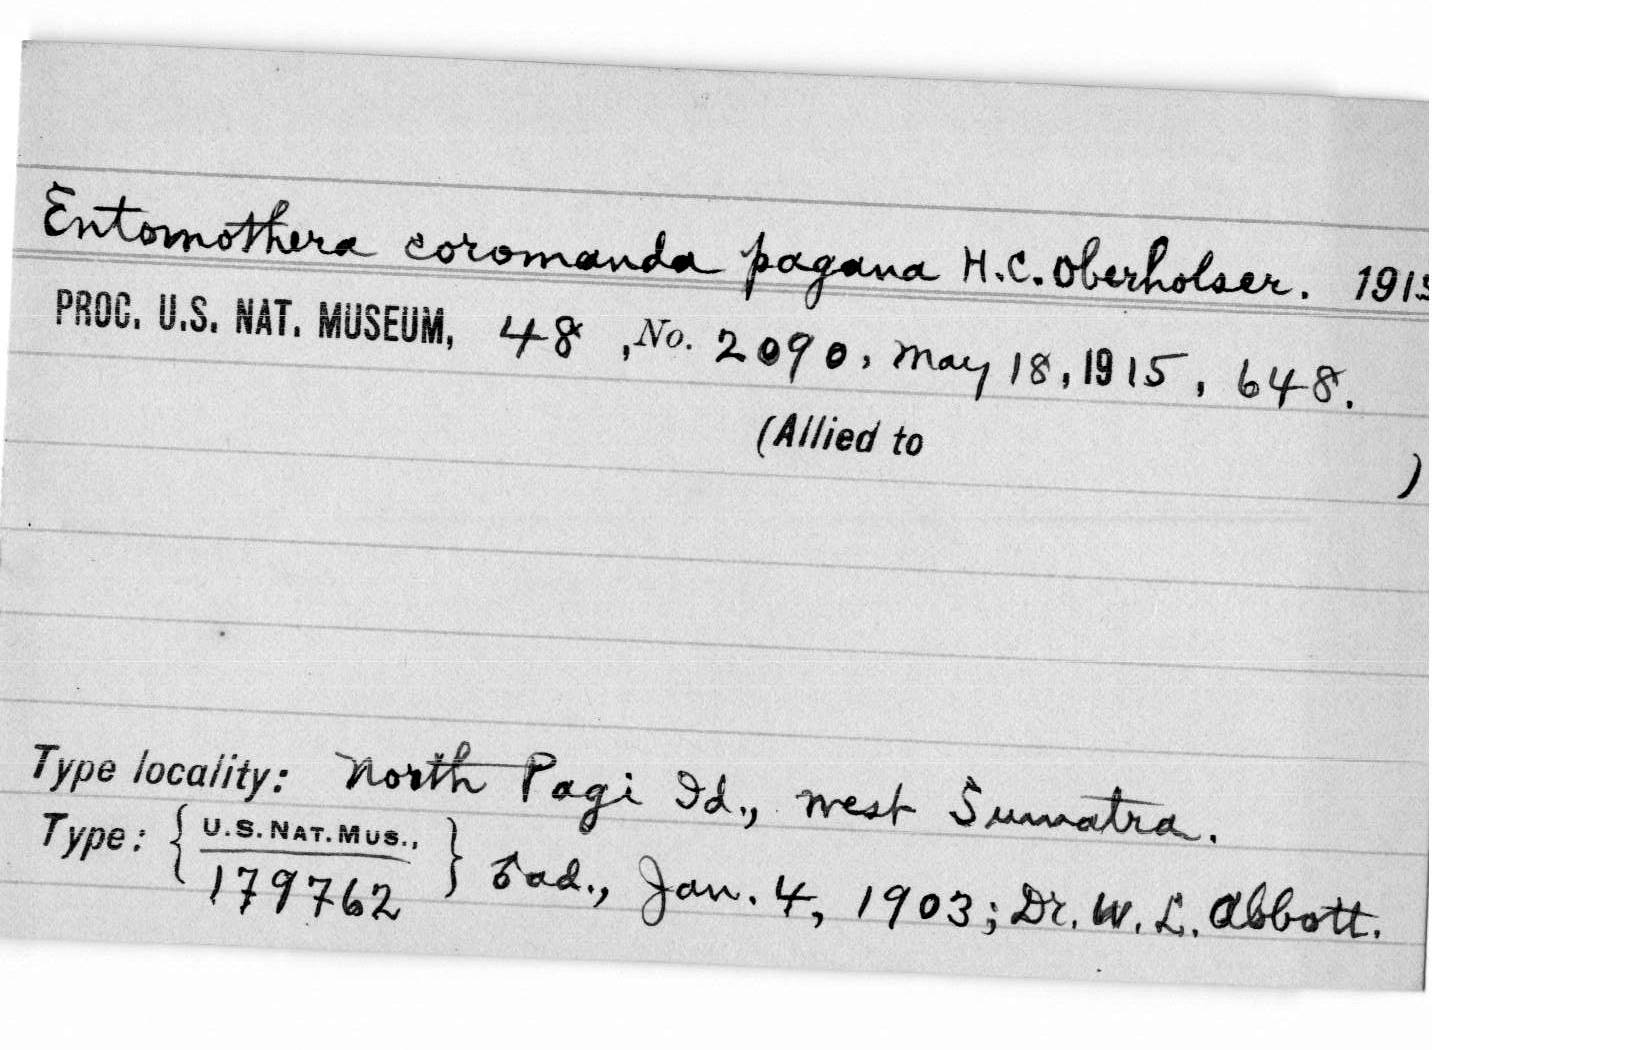 Entomothera coromanda pagana H.C. Oberholser. 1915
PROC. U.S. NAT. MUSEUM, 48, No. 2090, May 18, 1915, 648.
(Allied to )
Type locality: North Pagi Id., west Sumatra.
Type: { U.S. NAT. MUS., } ♂ad., Jan. 4, 1903; Dr. W. L. Abbott.
179762